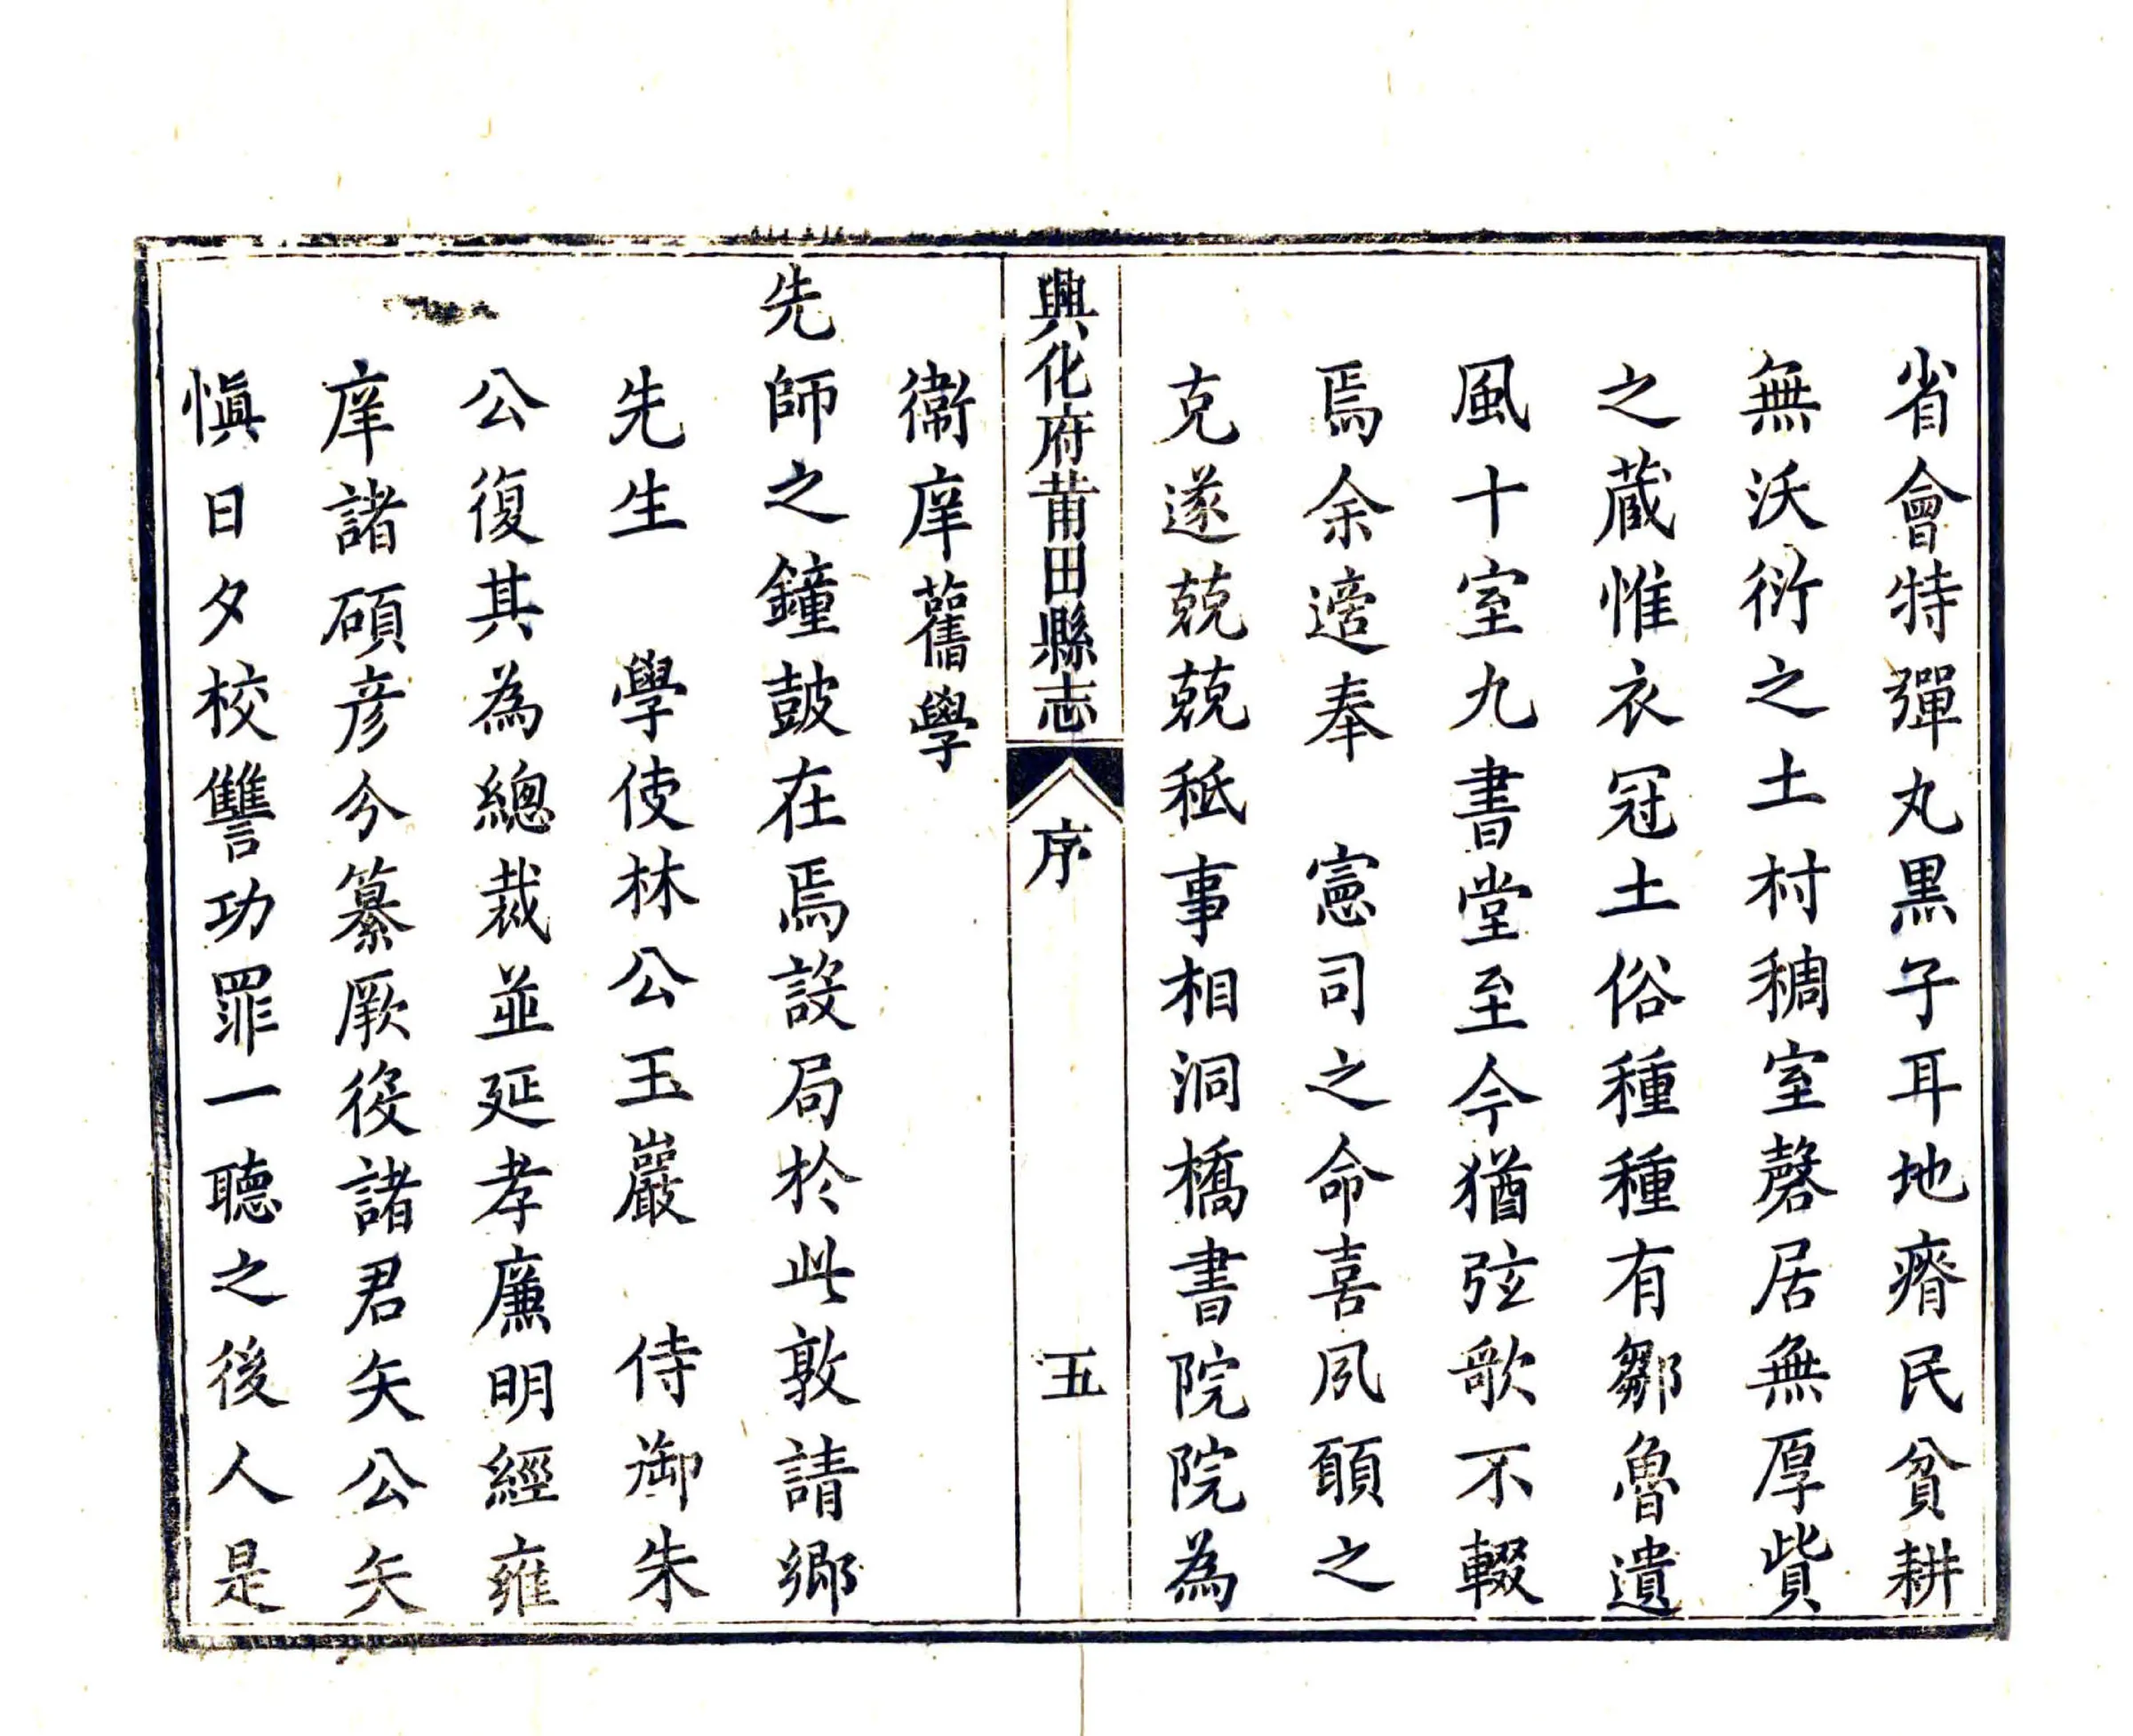 省會特彈丸黒子耳地瘠民貧耕
無沃衍之土村稠室磬居無厚貲
之蔵惟衣冠土俗種種有鄒魯遺
風十室九書堂至今猶弦歌不輟
焉余適奉　憲司之命喜夙願之
克遂兢兢秪事相洞橋書院院為
興化府莆田縣志
序
五
衞庠舊學
先師之鐘鼓在焉設局於此敦請鄉
先生　學使林公玉巖　侍御朱
公復其為總裁並延孝廉明經雍
庠諸碩彦分纂厥役諸君矢公矢
愼日夕校讐功罪一聽之後人是